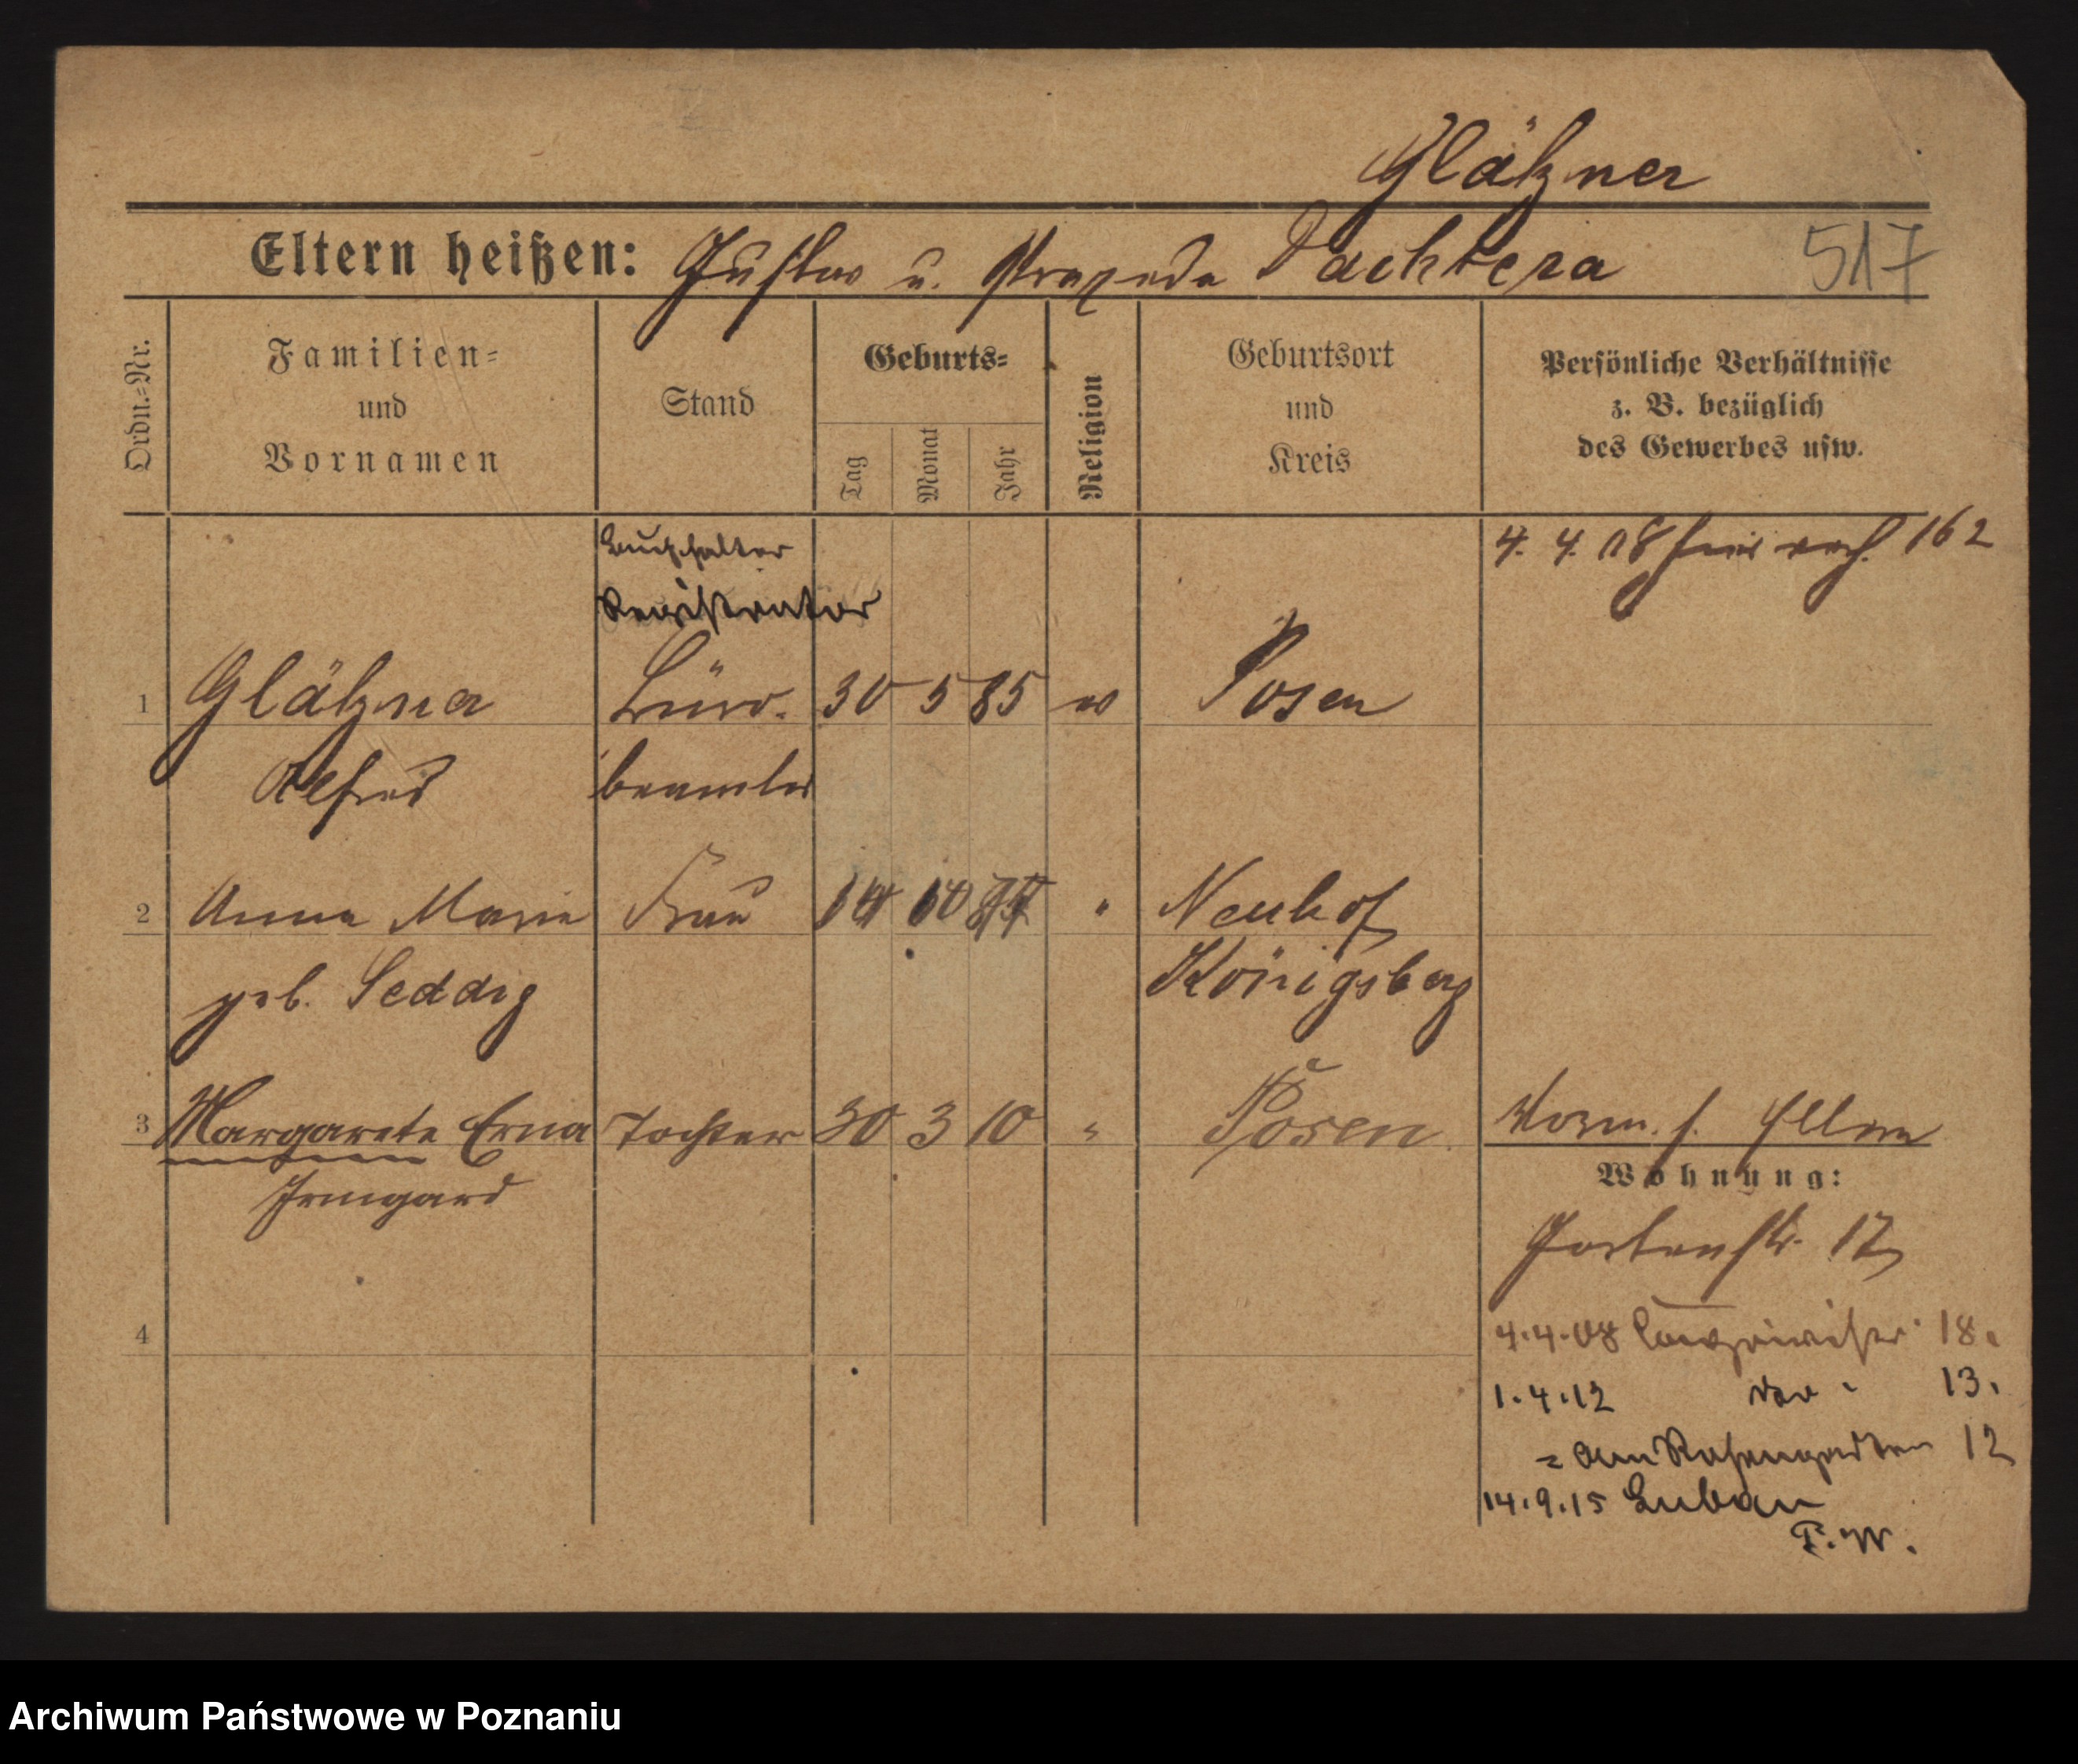 Glätzner
Eltern heißen: Gustav u. Praxeda Pachtera
517
Ordn.-Nr.
Familien-
und
Vornamen
Stand
Geburts-
Tag
Monat
Jahr
Religion
Geburtsort
und
Kreis
Persönliche Verhältnisse
z. B. bezüglich
des Gewerbes usw.
Buchhalter
4. 4. 08 162
Registrator
1 Glätzner Büro- 30 5 85 Posen
Alfred beamter
2 Anna Marie Frau 14 10 " Neuhof
geb. Seddig Königsberg
3 Margarete Erna Tochter 30 3 10 " Posen Vorm. s. Eltern
Irmgard
Wohnung:
Gartenstr. 17
4
4.4.08 18.
1.4.12 13.
= Am Rosengarten 12
14.9.15 Luban
P.W.
Archiwum Państwowe w Poznaniu